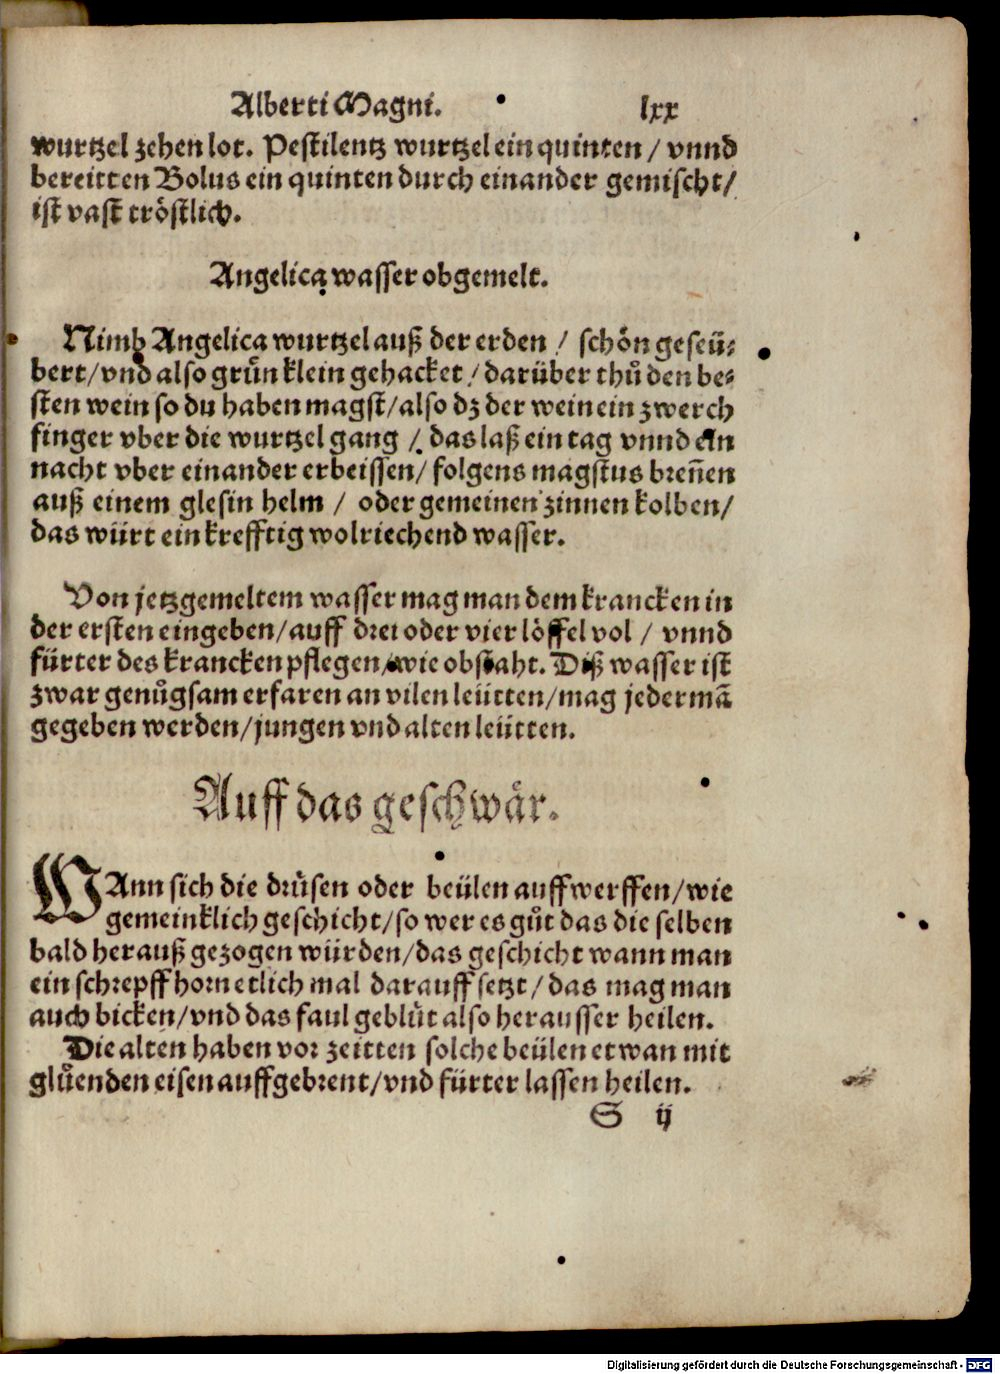 Alberti Magni. lxx
wurtzel zehen lot. Pestilentz wurtzel ein quinten / vnnd
bereitten Bolus ein quinten durch einander gemischt /
ist vast tröstlich.
Angelica wasser obgemelt.
Nimb Angelica wurtzel auß der erden / schön geseü⸗
bert / vnd also grün klein gehacket / darüber thů den be⸗
sten wein so du haben magst / also dz der wein ein zwerch
finger vber die wurtzel gang / das laß ein tag vnnd ein
nacht vber einander erbeissen / folgens magstus breñen
auß einem glesin helm / oder gemeinen zinnen kolben /
das würt ein krefftig wolriechend wasser.
Von jetzgemeltem wasser mag man dem krancken in
der ersten eingeben / auff drei oder vier löffel vol / vnnd
fürter des krancken pflegen / wie obstaht. Diß wasser ist
zwar genůgsam erfaren an vilen leütten / mag jedermã
gegeben werden / jungen vnd alten leütten.
Auff das geschwär.
WAnn sich die drůsen oder beülen auffwerffen / wie
gemeinklich geschicht / so wer es gůt das die selben
bald herauß gezogen würden / das geschicht wann man
ein schrepffhorn etlich mal darauff setzt / das mag man
auch bicken / vnd das faul geblůt also herausser heilen.
Die alten haben vor zeitten solche beülen etwan mit
glůenden eisen auffgebrent / vnd fürter lassen heilen.
S ij
Digitalisierung gefördert durch die Deutsche Forschungsgemeinschaft - DFG